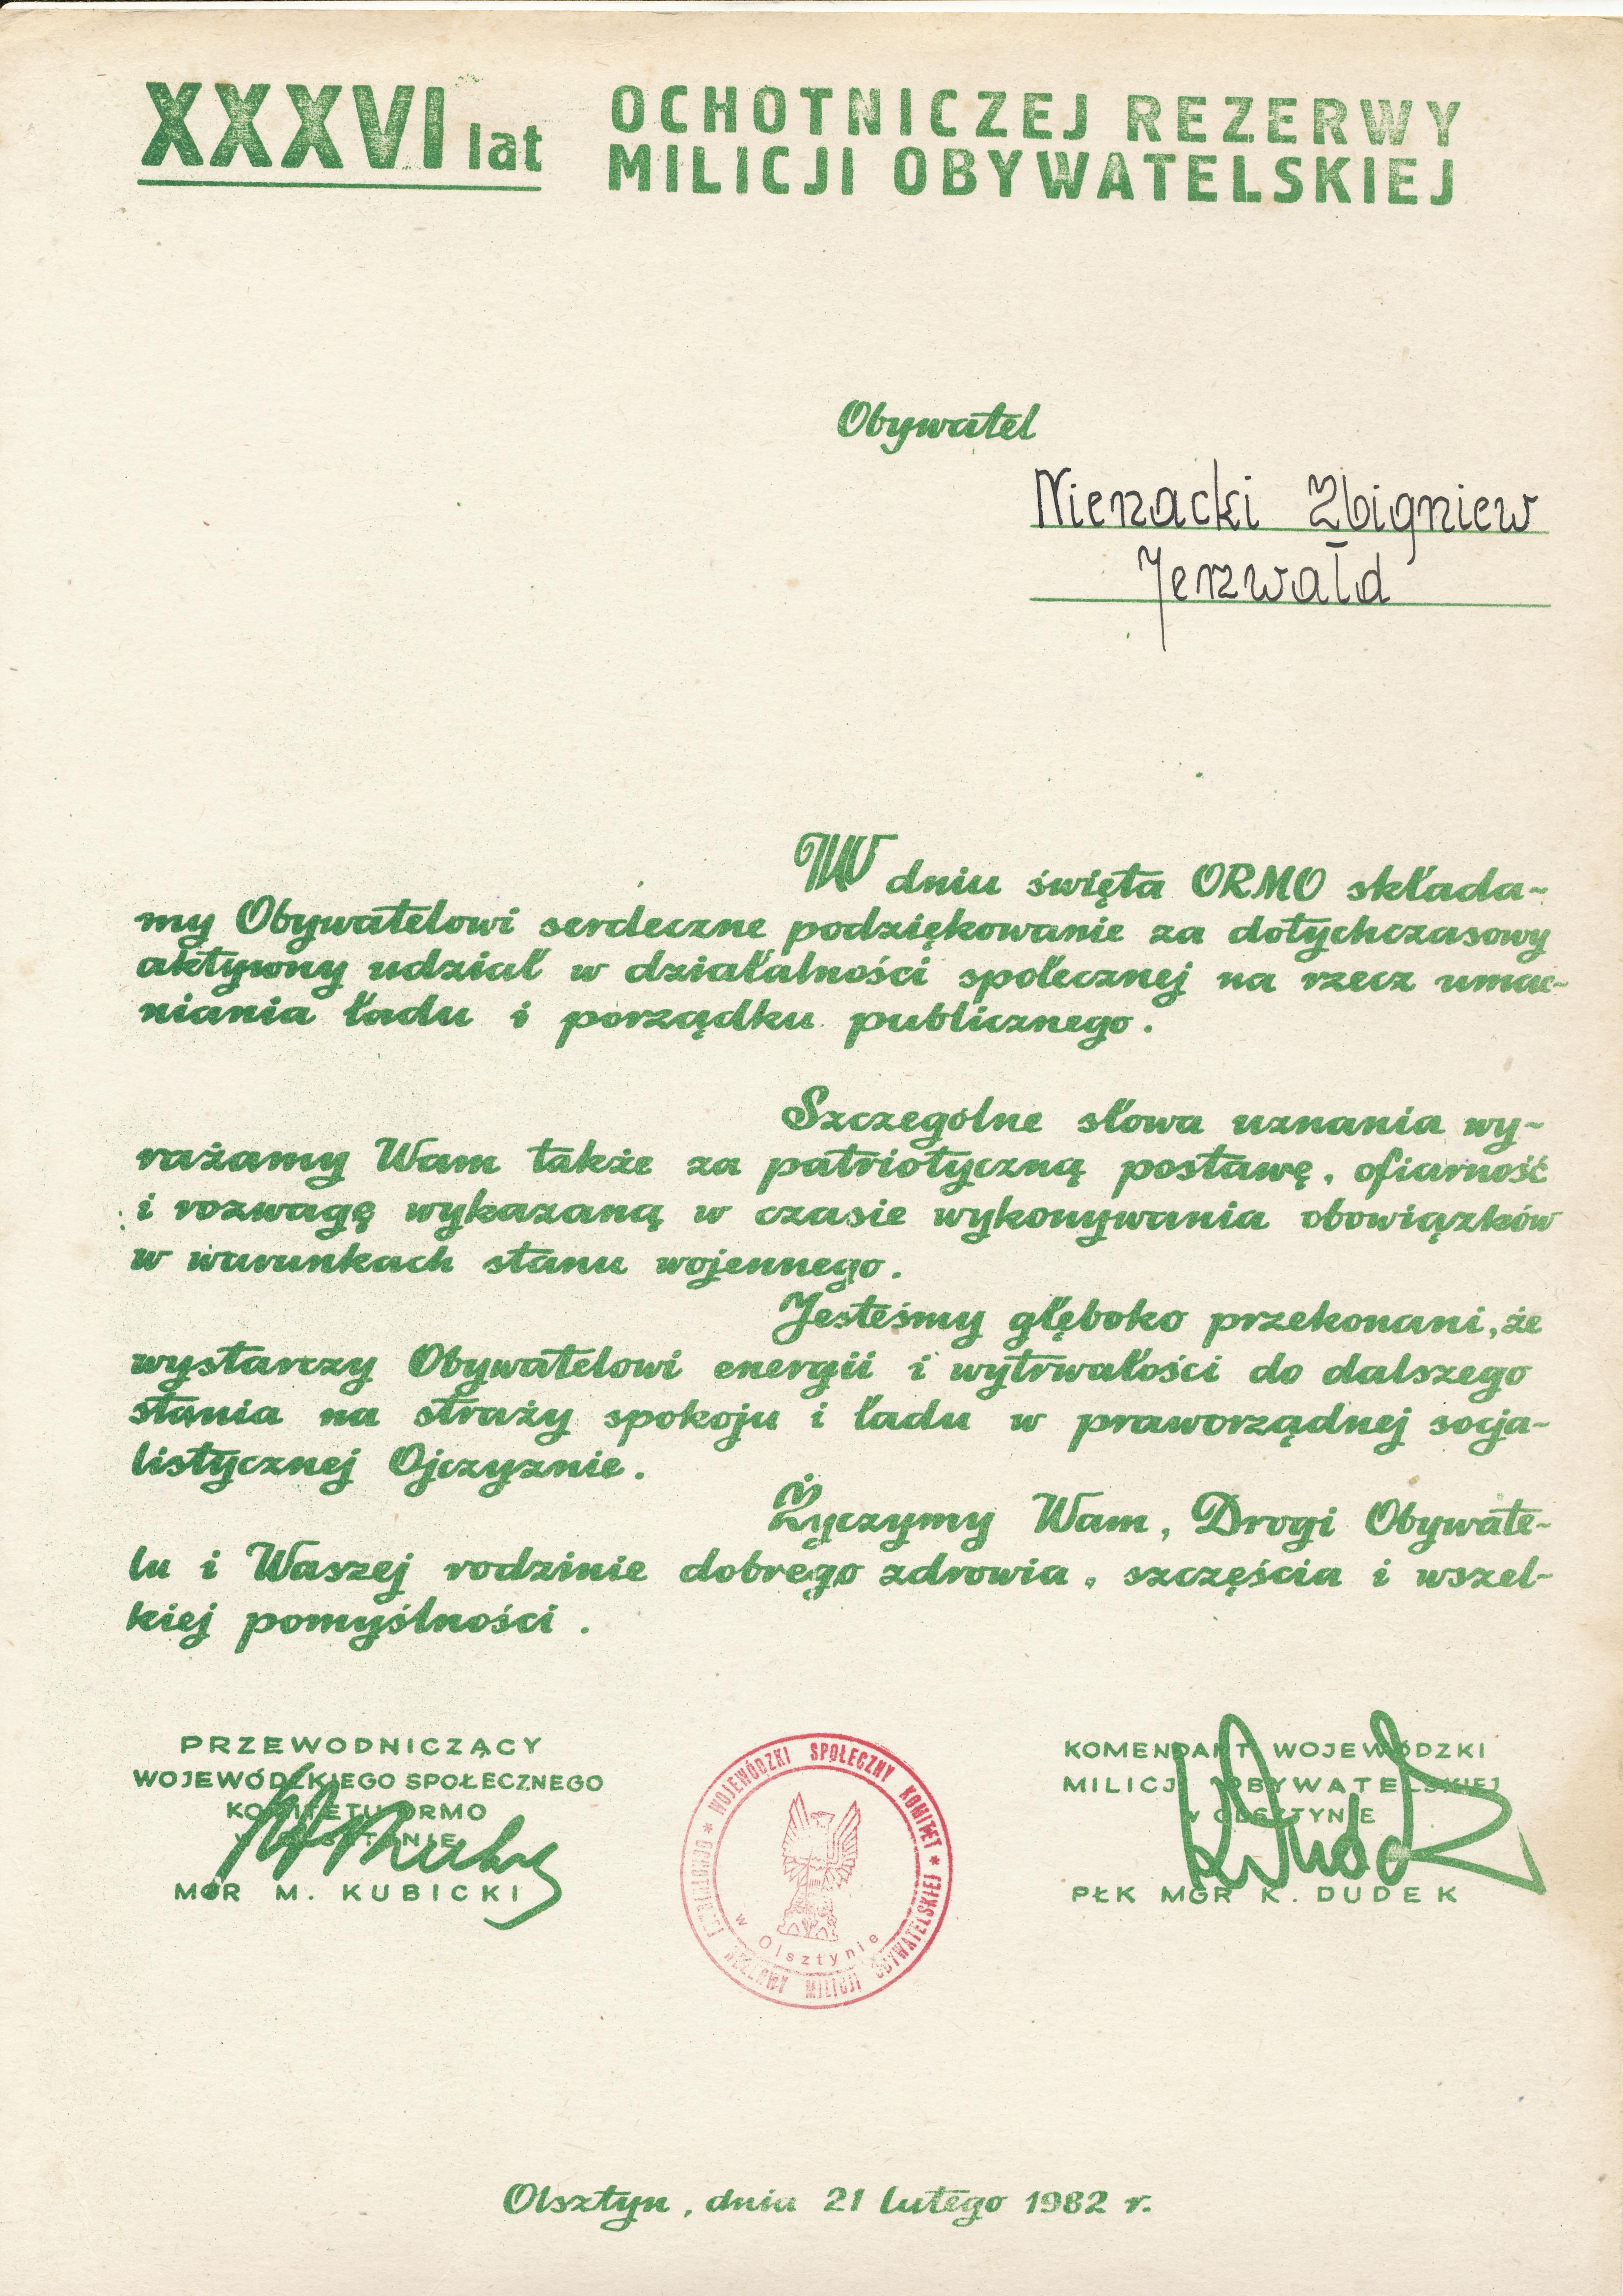 XXXVI lat
OCHOTNICZEJ REZERWY
MILICJI OBYWATELSKIEJ
Obywatel
Nienacki Zbigniew
Jerzwałd
W dniu święta ORMO składa-
my Obywatelowi serdeczne podziękowanie za dotychczasowy
aktywny udział w działalności społecznej na rzecz umac-
niania ładu i porządku publicznego.
Szczególne słowa uznania wy-
rażamy Wam także za patriotyczną postawę, ofiarność
i rozwagę wykazaną w czasie wykonywania obowiązków
w warunkach stanu wojennego.
Jesteśmy głęboko przekonani, że
wystarczy Obywatelowi energii i wytrwałości do dalszego
stania na straży spokoju i ładu w praworządnej socja-
listycznej Ojczyznie.
Życzymy Wam, Drogi Obywate-
lu i Waszej rodzinie dobrego zdrowia, szczęścia i wszel-
kiej pomyślności.
PRZEWODNICZĄCY
WOJEWÓDZKIEGO SPOŁECZNEGO
KOMITETU ORMO
W OLSZTYNIE
MGR M. KUBICKI
WOJEWÓDZKI SPOŁECZNY KOMITET * OCHOTNICZEJ REZERWY MILICJI OBYWATELSKIEJ *
w Olsztynie
KOMENDANT WOJEWÓDZKI
MILICJI OBYWATELSKIEJ
W OLSZTYNIE
K Dudek
PŁK MGR K. DUDEK
Olsztyn, dnia 21 lutego 1982 r.